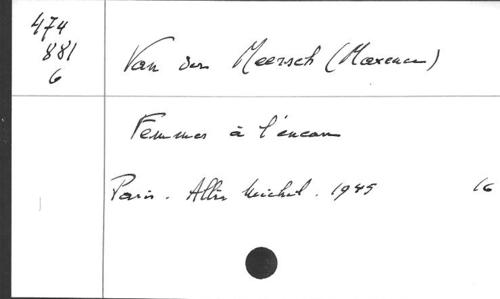 474
881
6
Van der Meersch (Maxence)
Femmes à l'encan
Paris. Albin Michel. 1945 16